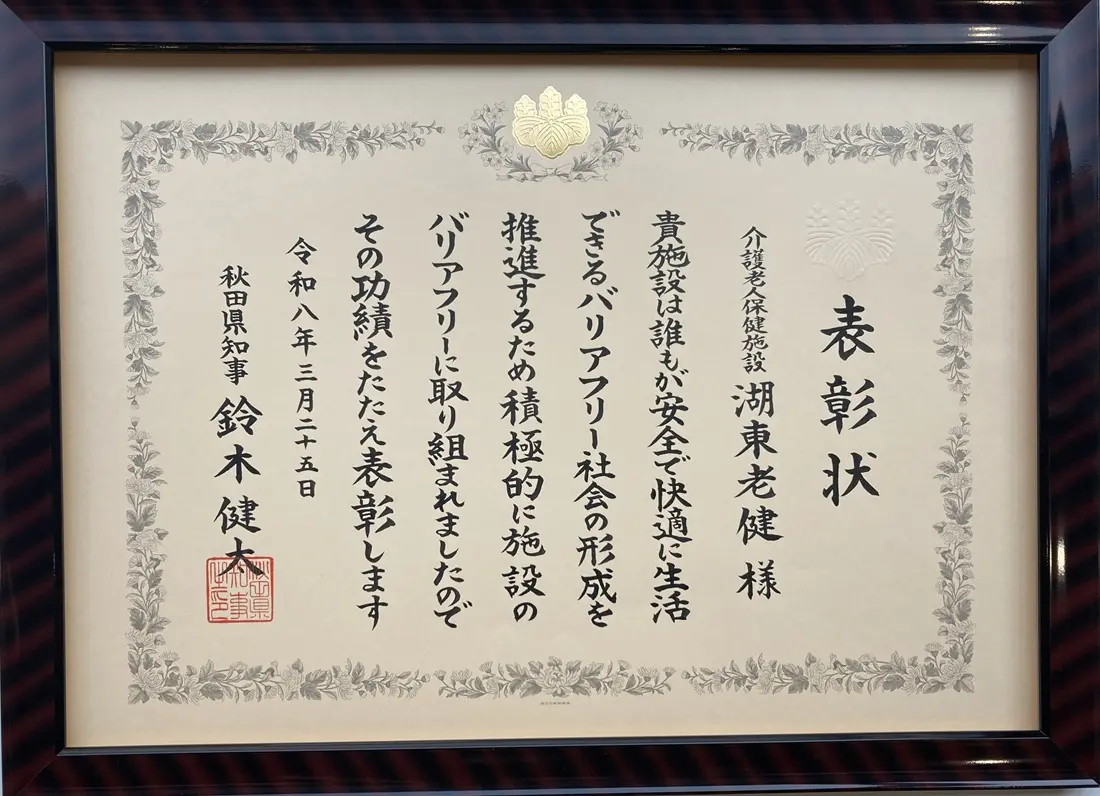 表彰状
介護老人保健施設 湖東老健 様
貴施設は誰もが安全で快適に生活
できるバリアフリー社会の形成を
推進するため積極的に施設の
バリアフリーに取り組まれましたので
その功績をたたえ表彰します
令和八年三月二十五日
秋田県知事 鈴木健太